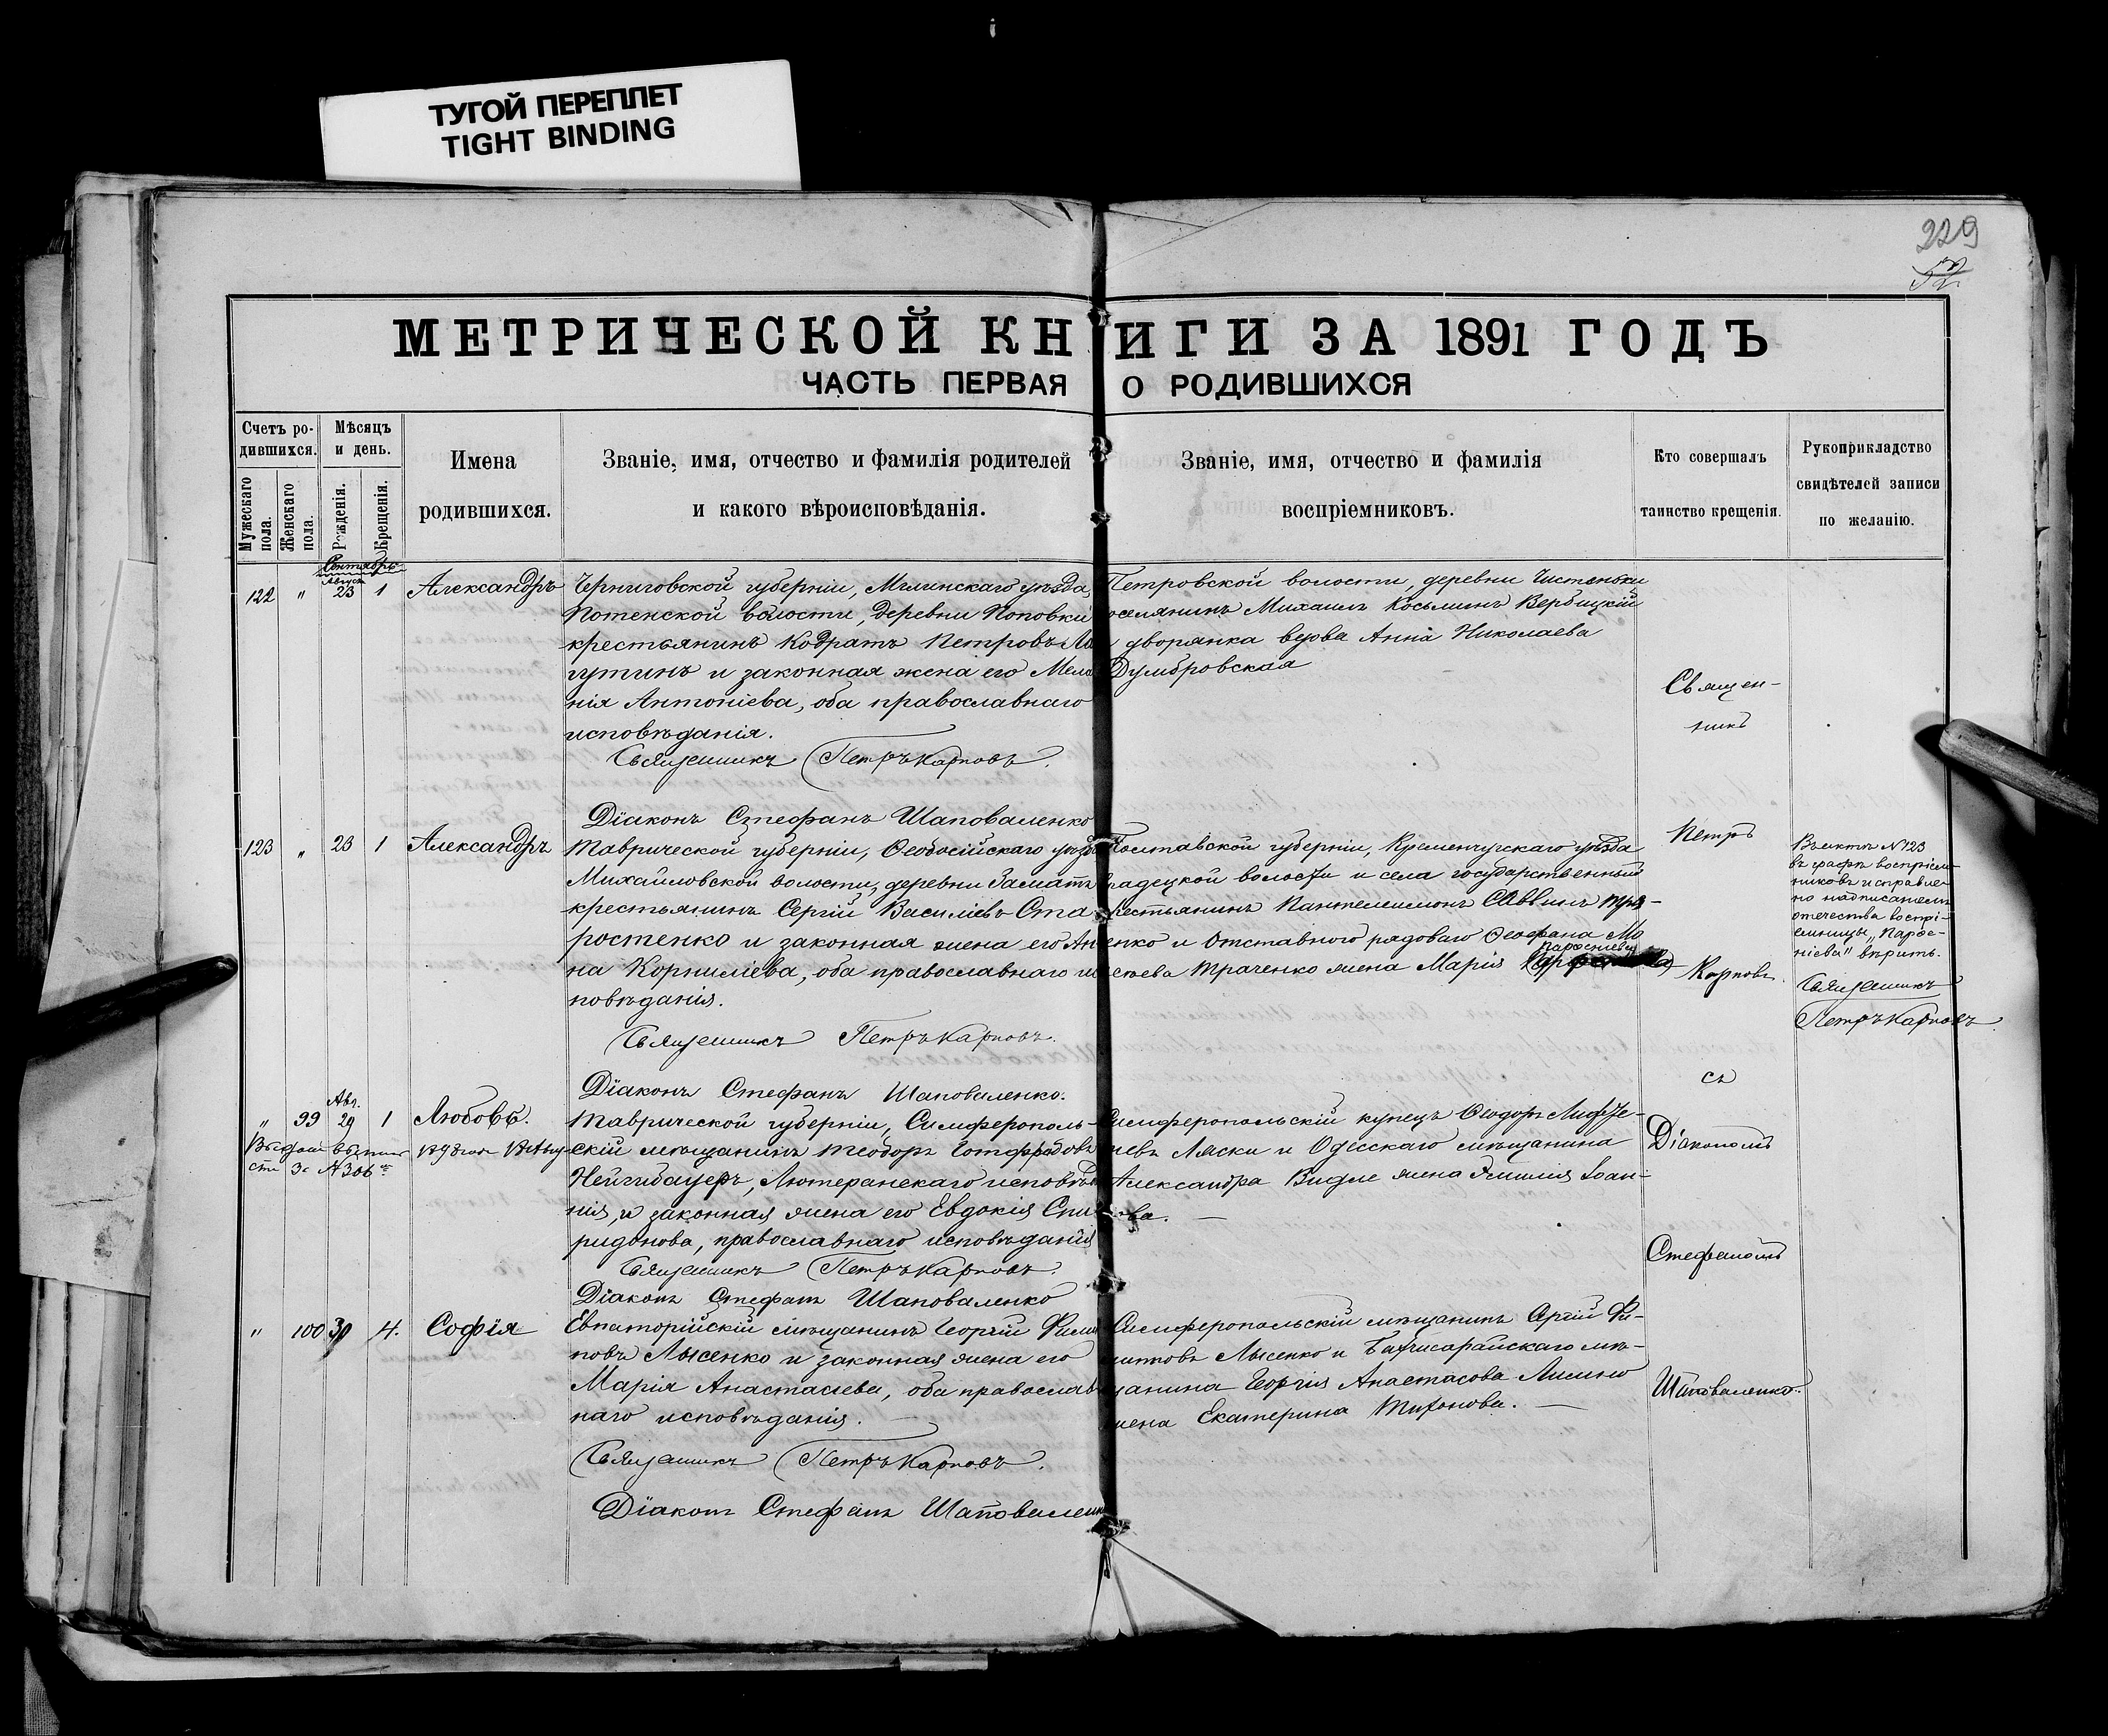 ТУГОЙ ПЕРЕПЛЕТ
TIGHT BINDING
229
МЕТРИЧЕСКОЙ КНИГИ ЗА 1891 ГОДЪ
ЧАСТЬ ПЕРВАЯ О РОДИВШИХСЯ
Счетъ ро-
дившихся.
Мужескаго пола.
Женскаго пола.
Мѣсяцъ
и день.
Рожденія.
Крещенія.
Имена
родившихся.
Званіе, имя, отчество и фамилія родителей
и какого вѣроисповѣданія.
Званіе, имя, отчество и фамилія
воспріемниковъ.
Кто совершалъ
таинство крещенія.
Рукоприкладство
свидѣтелей записи
по желанію.
Сентябрь
Августа
122 " 23 1 Александръ
Черниговской губерніи, Мглинскаго уѣзда,
волости, деревни Поповки
крестьянинъ Кодратъ Петровъ Ла
гутинъ и законная жена его Мела
нія Антоніева, оба православнаго
исповѣданія.
Священникъ Петръ Карповъ.
Діаконъ Стефанъ Шаповаленко
Петровской волости, деревни Чистеньки
поселянинъ Михаилъ Косьминъ Вербицкій
и дворянка вдова Анна Николаева
Думбровская
123 " 23 1 Александръ
Таврической губерніи, Ѳеодосійскаго уѣзда
Михайловской волости, деревни
крестьянинъ Сергій Василіевъ Ста
ростенко и законная жена его Ан
на Корниліева, оба православнаго ис
повѣданія.
Священникъ Петръ Карповъ.
Діаконъ Стефанъ Шаповаленко.
Полтавской губерніи, Кременчугскаго уѣзда
градецкой волости и села государственный
крестьянинъ Пантелеимонъ Саввинъ Тра-
ченко и отставного рядоваго Ѳеофана Мо
сеева Траченко жена Марія Парѳеніева
Въ актѣ № 123
въ графѣ воспріем-
никовъ исправле-
но надписаніемъ
отечества воспрі-
емницы „Парѳе-
ніева" вѣрить.
Священникъ
Петръ Карповъ.
Авг.
" 99 29 1 Любовь.
Таврической губерніи, Симферополь-
скій мѣщанинъ Теодоръ Готфридовъ
Нейгибауеръ, Лютеранскаго исповѣда
нія, и законная жена его Евдокія Спи
ридонова, православнаго исповѣданія
Священникъ Петръ Карповъ.
Діаконъ Стефанъ Шаповаленко
Симферопольскій купецъ Ѳеодоръ
Ляски и Одесскаго мѣщанина
Александра Видле жена Эмилія Іоан-
нова.
" 100 30 4. Софія
Евпаторійскій мѣщанинъ Георгій Филип
повъ Лысенко и законная жена его
Марія Анастасіева, оба православ
наго исповѣданія.
Священникъ Петръ Карповъ.
Діаконъ Стефанъ Шаповаленко
Симферопольскій мѣщанинъ Сергій Фи-
липповъ Лысенко и Бахчисарайскаго мѣ-
щанина Георгія Анастасова
жена Екатерина Тихонова.
Священ-
никъ
Петръ
Карповъ
съ
Діакономъ
Стефаномъ
Шаповаленко.